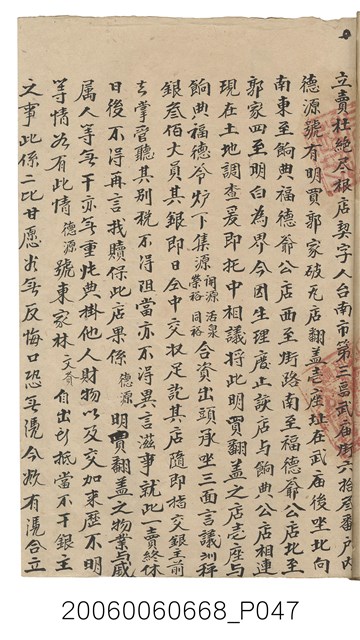 立賣杜絕尽根店契字人台南市第三區武庙街六拾叁番戶內
德源號有明買郭家破瓦店翻盖壱座址在武庙後坐北向
南東至餉典福德爺公店西至街路南至福德爺公店北至
郭家四至明白為界今因生理廢止該店与餉典公店相連
現在土地調查爰即托中相議將此明買翻盖之店壱座与
餉典福德爺炉下集源 活泉 榮裕 同裕 合資出頭承坐三面言議訓秤
銀叁佰大員其銀即日仝中交收足訖其店隨即指交銀主前
去掌管聽其別稅不得阻當亦不得異言滋事就此一賣終休
日後不得再言找贖保此店果係德源明買翻盖之物業与戚
属人等無干亦無重張典掛他人財物以及交加來歷不明
等情如有此情德源號東家林文齊自出首抵當不干銀主
之事此係二比甘愿各無反悔口恐無憑今欲有憑合立
20060060668_P047